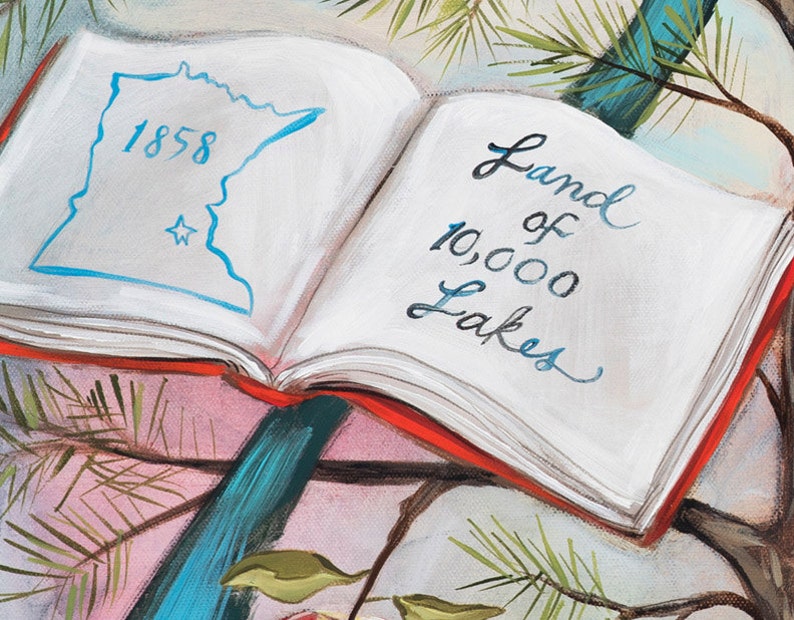 1858
Land
of
10,000
Lakes